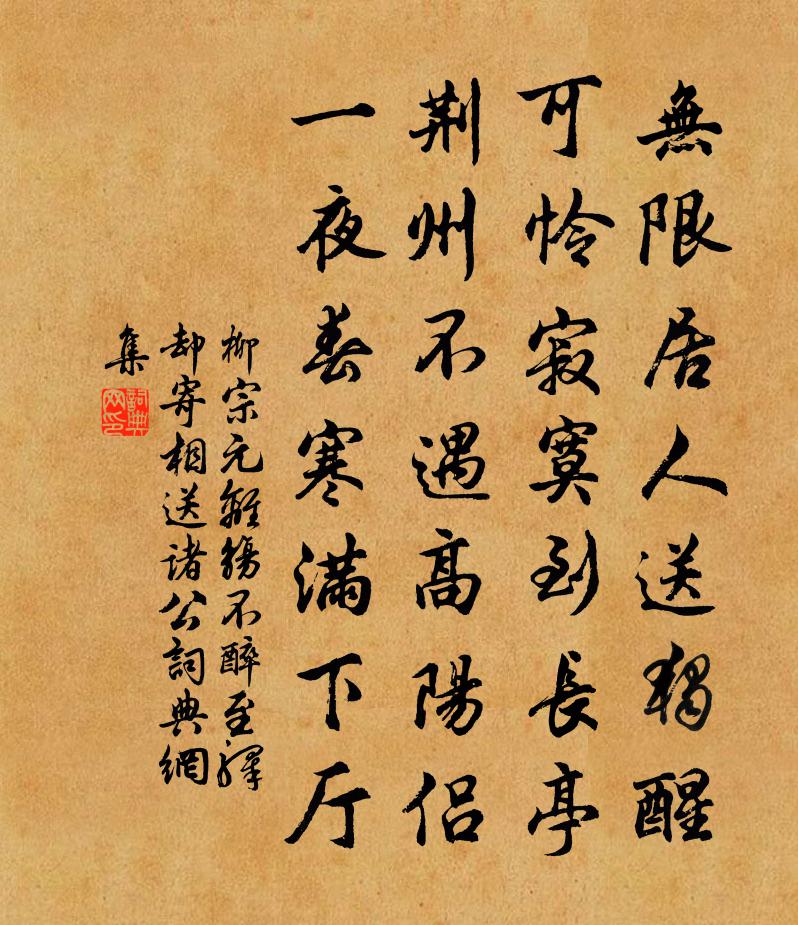 無限居人送獨醒
可怜寂寞到長亭
荆州不遇高陽侣
一夜春寒满下厅
柳宗元離觴不醉至驛
却寄相送諸公詞典網
集
詞典網印